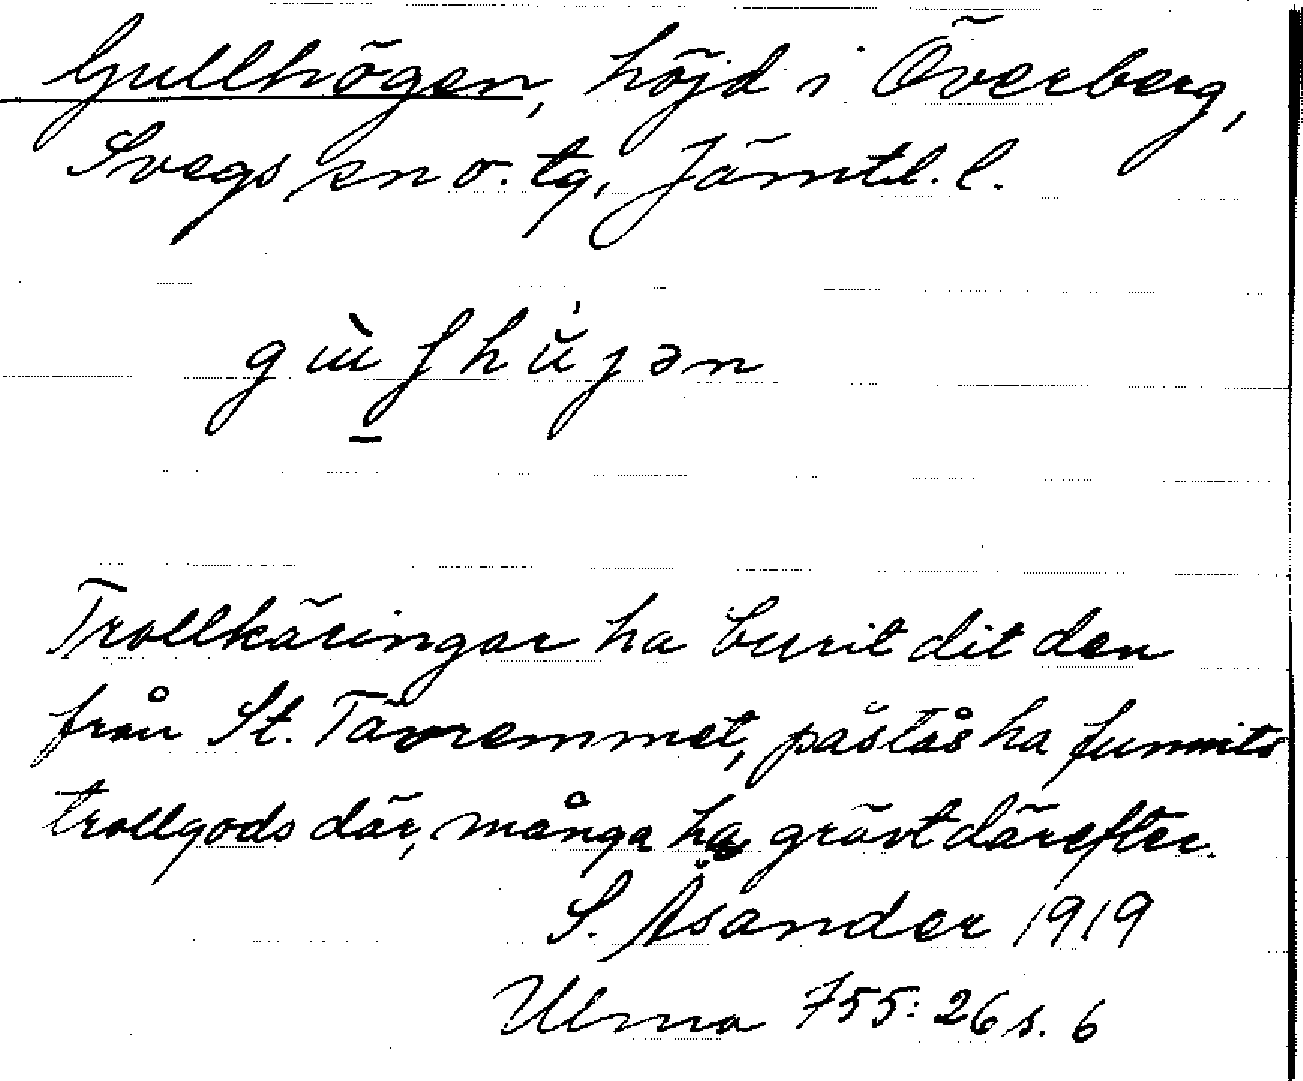 Gullhögen, höjd i Överberg,
Svegs sn o. tg, Jämtl. l.
Trollkäringar ha burit dit den
från St. Tävremmet, påstås ha funnits
trollgods där, många ha grävt därefter.
S. Åsander 1919
Ulma 755:26 s. 6